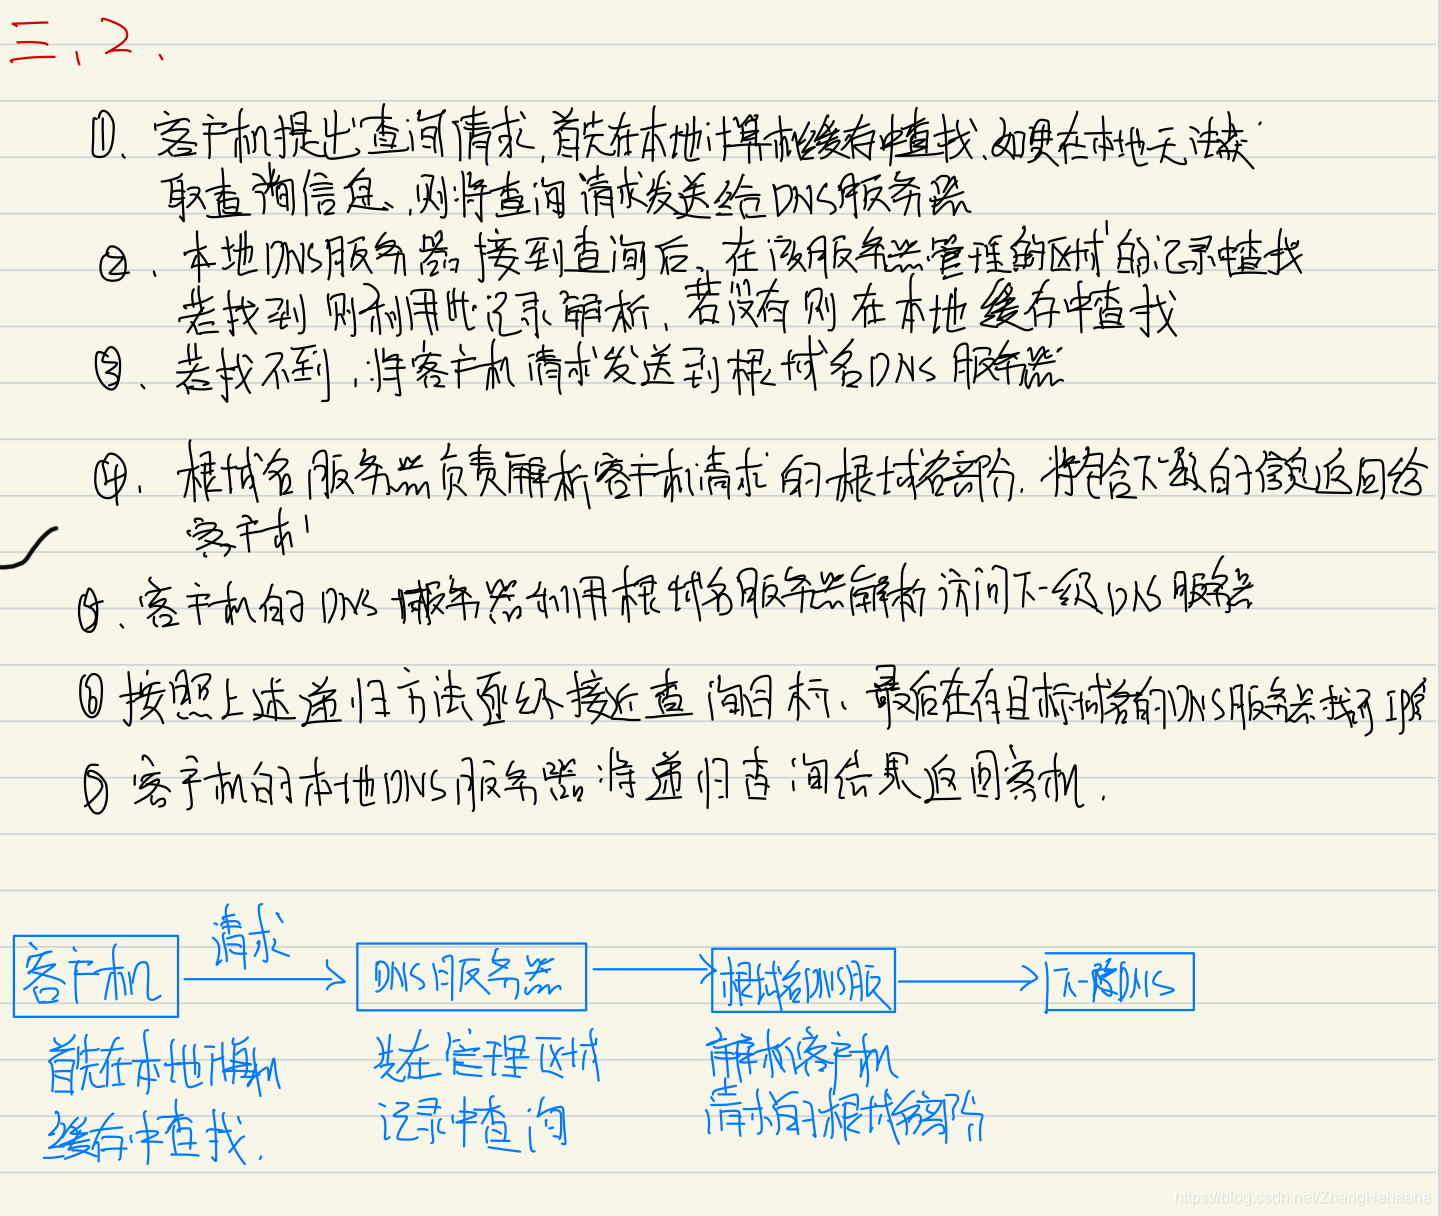 三、2.
①、客户机提出查询请求,首先在本地计算机缓存中查找、如果在本地无法获
取查询信息、,则将查询请求发送给DNS服务器
②、本地DNS服务器接到查询后、在该服务器管理的区域的记录中查找
若找到则利用此记录解析、若没有则在本地缓存中查找
③、若找不到,将客户机请求发送到根域名DNS服务器
④、根域名服务器负责解析客户机请求的根域名部分.将包含下一级的信息返回给
客户机
、客户机的DNS服务器利用根域名服务器解析访问下一级DNS服务器
⑥按照上述递归方法逐级接近查询目标、最后在有目标域名的DNS服务器找到IP
客户机的本地DNS服务器将递归查询结果返回客机.
请求
客户机
DNS服务器
根域名DNS服
下一DNS
首先在本地计算机
缓存中查找.
先在管理区域
记录中查询
解析客户机
请求的根域名部分
https://blog.csdn.net/ZhangHahaaha